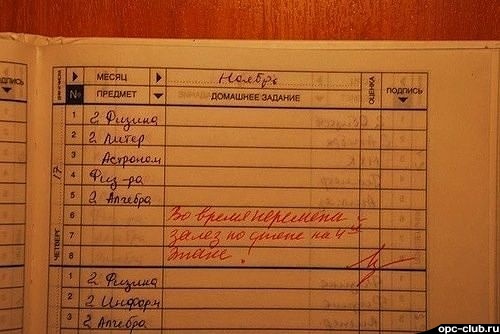 ПОДПИСЬ
МЕСЯЦ Ноябрь
№ ПРЕДМЕТ ДОМАШНЕЕ ЗАДАНИЕ ОЦЕНКА ПОДПИСЬ
1 2 Физика
2 2 Литер
3 Астроном
4 Физ-ра
5 2 Алгебра
17
ЧЕТВЕРГ
6 Во время перемена
7 залез по стене на 4ый
8 этаж!
1 2 Физика
2 2 Информ
3 2 Алгебра
opc-club.ru